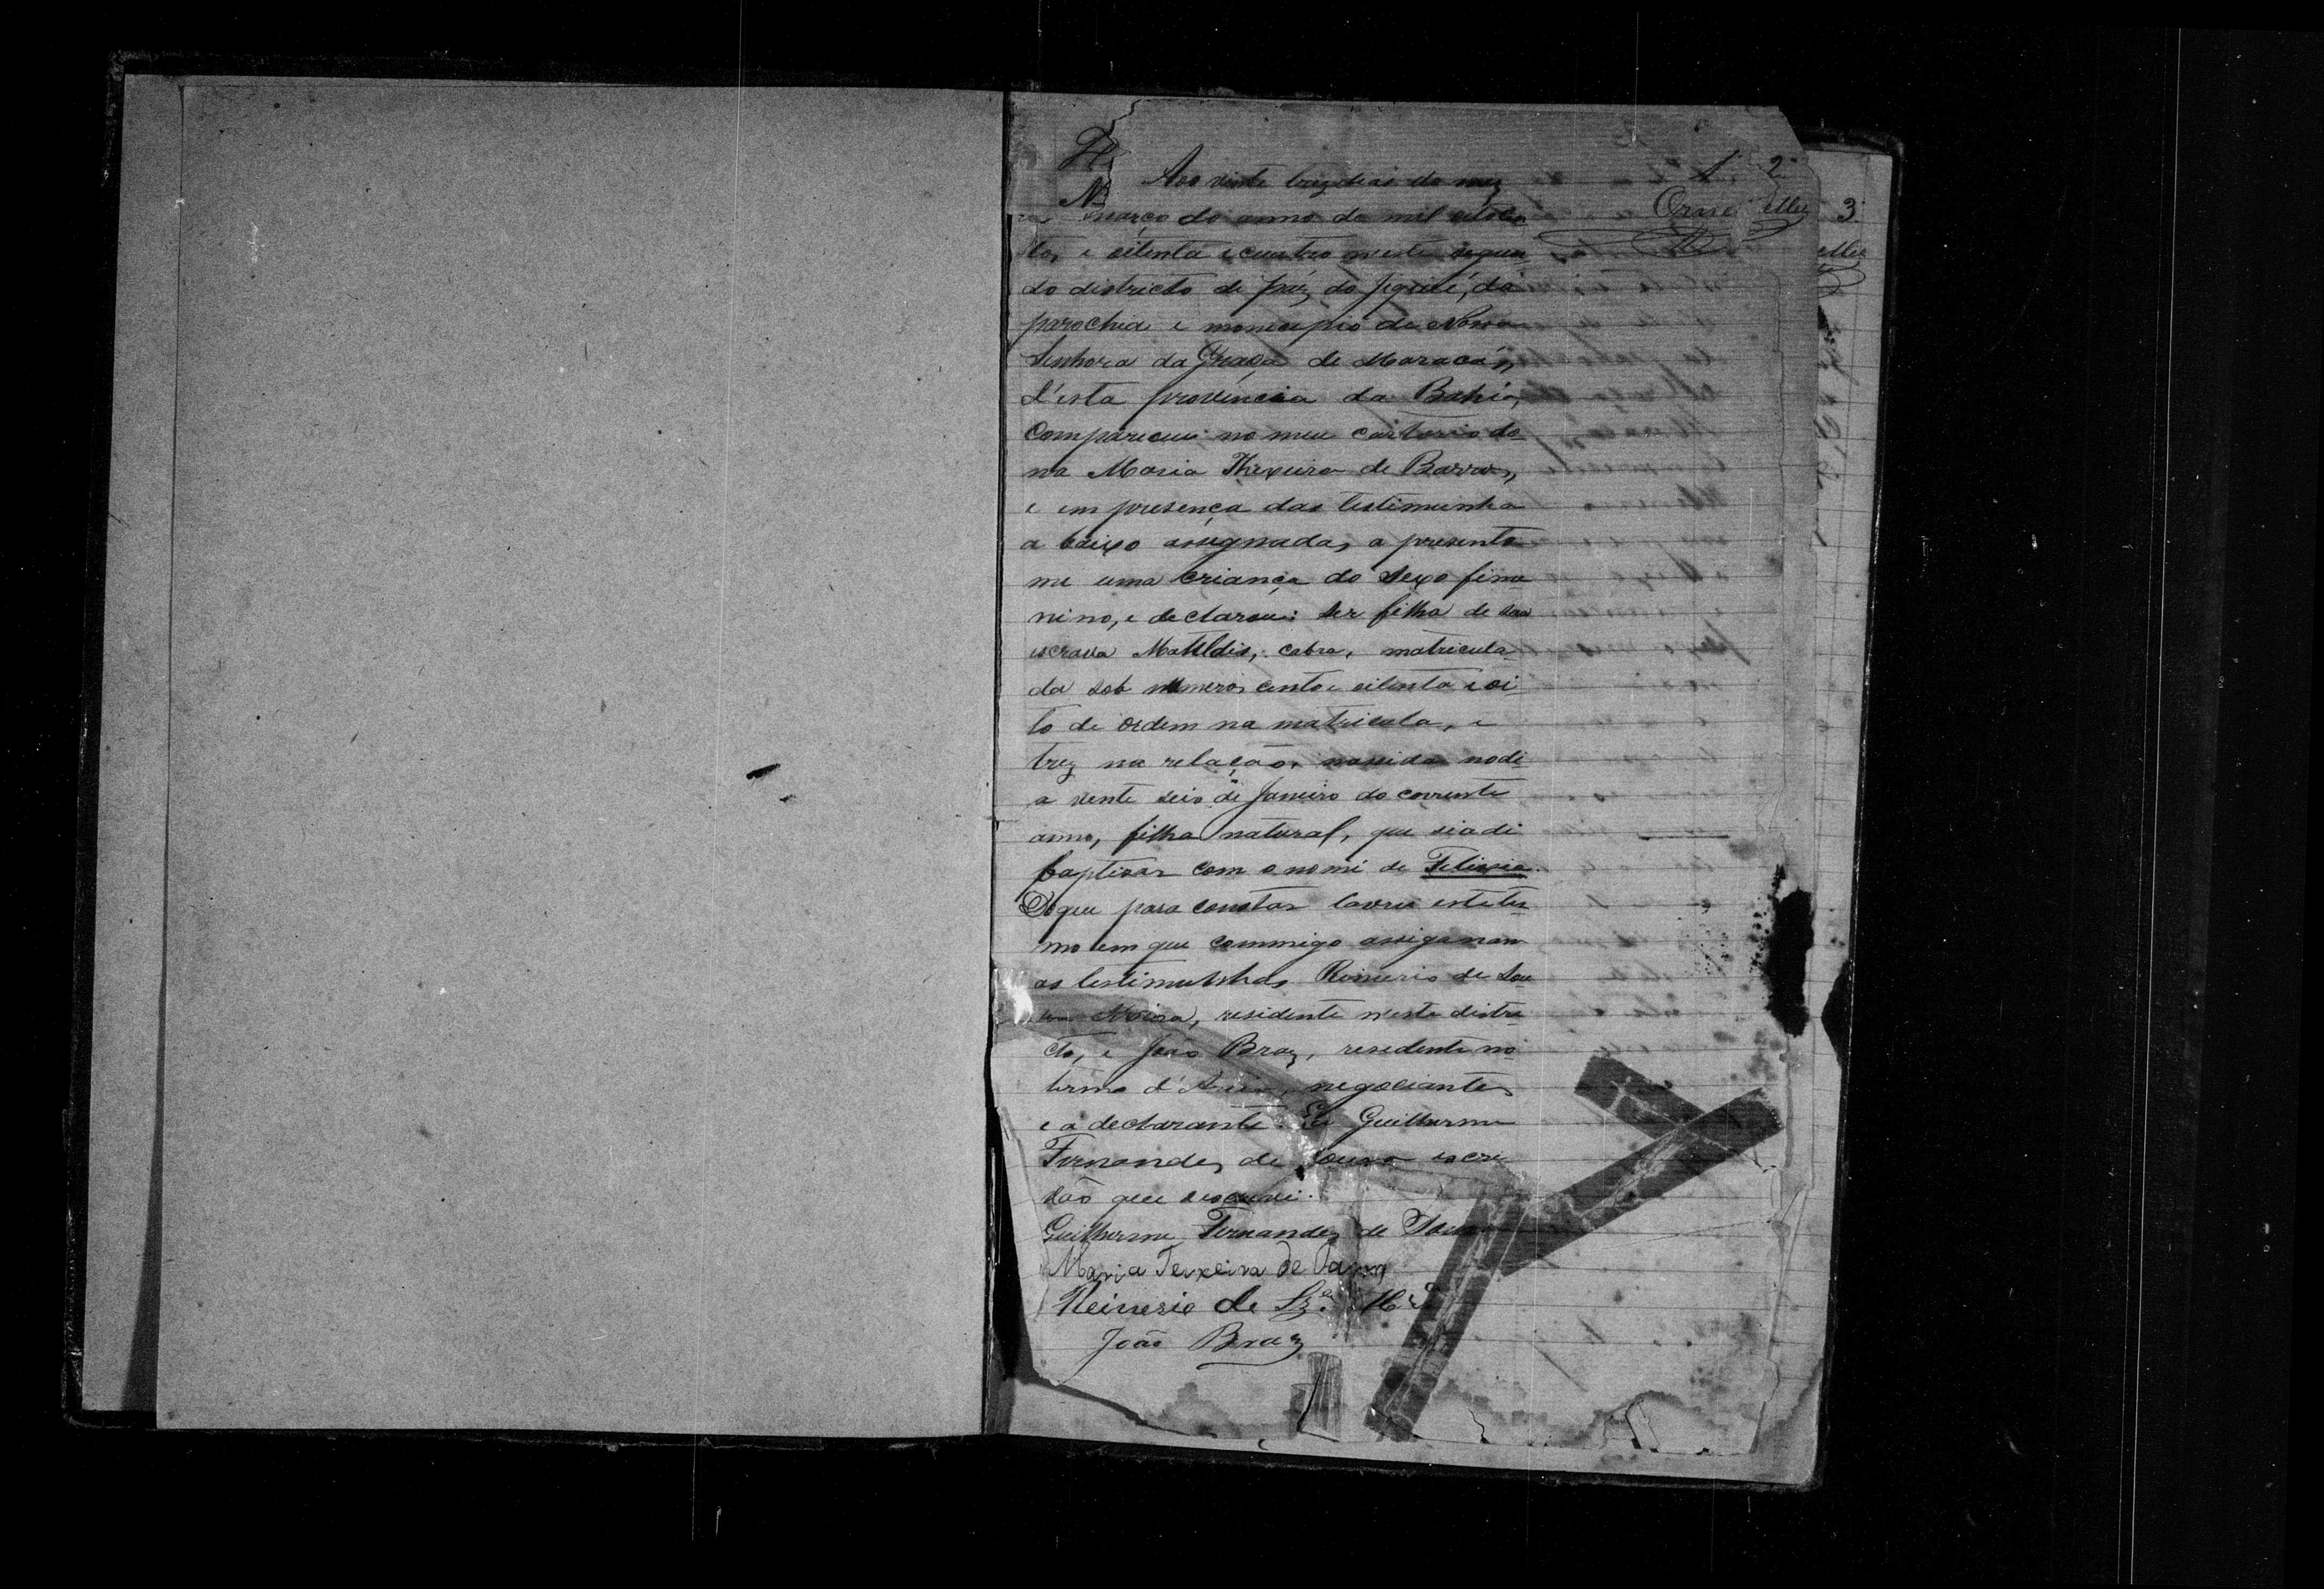 2.
Nº Aos vinte trez dias do mez
março do anno de mil oitocen 3
tos e oitenta e cuatro neste segun
do districto de páz do Jiquié, da
parochia e monicipio de Nossa
Senhora da Graça de Maracás,
d'esta provincia da Bahia,
Compareceu no meu cartorio do
na Maria Thexeira de Barros,
e em presença das testimunha
a baixo assignadas, a presento
me uma criança do sexo fime
nino, e declarou: ser filha de sua
escrava Matildis, cabra, matricula
da sob numeros cento e oitenta e oi
to de ordem na matricula, e
trez na relação, nascida no di
a vente seis de Janeiro do corrente
anno, filha natural, que siadi
baptisar com o nomi de Felissia.
Do que para constar lavrei este ter
mo em que commigo assiganam
as testimunhas Reinerio de Sou
residente neste distri
cto, e João Braz, resedente no
termo negociantes
e a declarante. Eu Guilherme
Fernandes de Souza escri
vão que escrevi.
Guilherme Fernandes de Souza
Maria Teixeira de
Reinerio de Sza.
João Braz